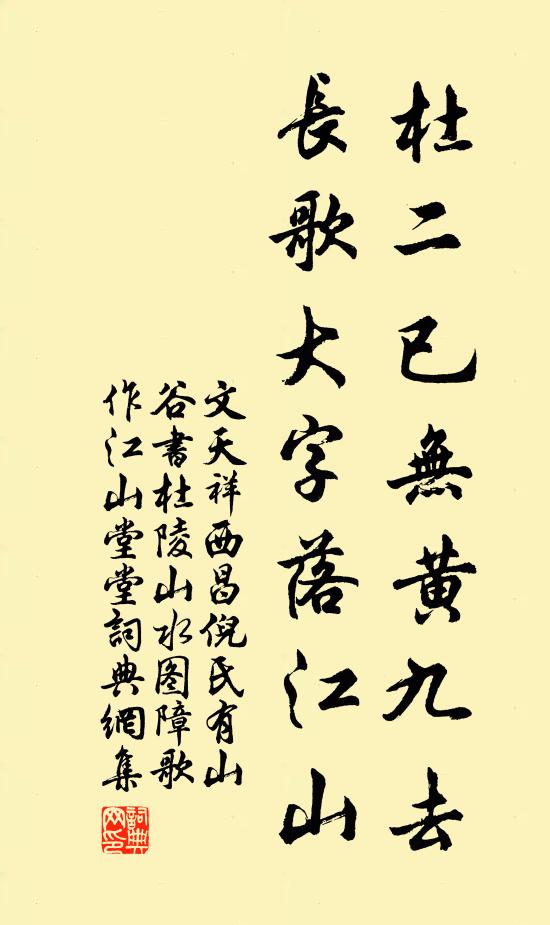 杜二已無黄九去
長歌大字落江山
文天祥西昌倪氏有山
谷書杜陵山水图障歌
作江山堂堂詞典網集
詞典网印